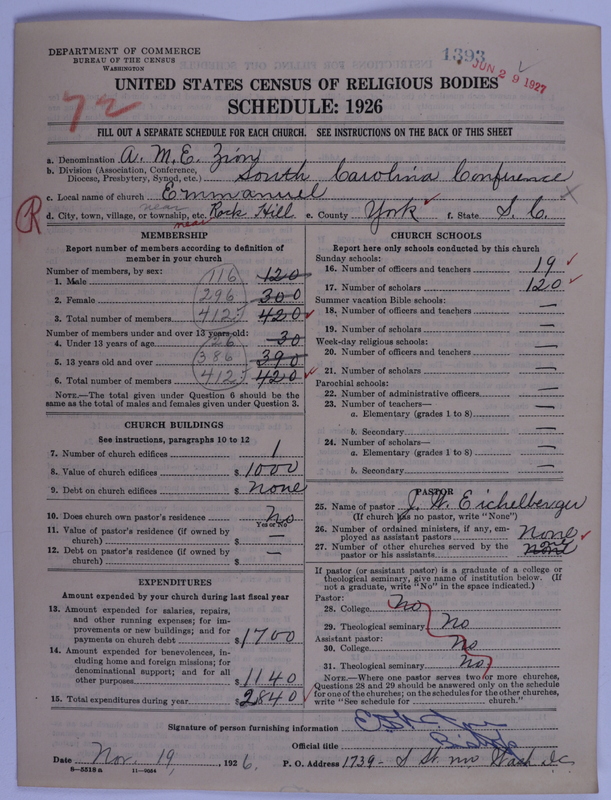 DEPARTMENT OF COMMERCE
BUREAU OF THE CENSUS
WASHINGTON
1393
JUN 29 1927
UNITED STATES CENSUS OF RELIGIOUS BODIES
SCHEDULE: 1926
72
FILL OUT A SEPARATE SCHEDULE FOR EACH CHURCH. SEE INSTRUCTIONS ON THE BACK OF THIS SHEET
a. Denomination A. M. E. Zion
b. Division (Association, Conference, Diocese, Presbytery, Synod, etc.) South Carolina Conference
c. Local name of church Emmanuel
R d. City, town, village, or township, etc. near Rock Hill e. County York f. State S. C.
near
MEMBERSHIP
Report number of members according to definition of member in your church
Number of members, by sex:
1. Male 116 120
2. Female 296 300
3. Total number of members 412 420
Number of members under and over 13 years old:
4. Under 13 years of age 26 30
5. 13 years old and over 386 390
6. Total number of members 412 420
NOTE.—The total given under Question 6 should be the same as the total of males and females given under Question 3.
CHURCH BUILDINGS
See instructions, paragraphs 10 to 12
7. Number of church edifices 1
8. Value of church edifices $ 1000
9. Debt on church edifices $ none
10. Does church own pastor's residence No
Yes or No
11. Value of pastor's residence (if owned by church) $ —
12. Debt on pastor's residence (if owned by church) $ —
EXPENDITURES
Amount expended by your church during last fiscal year
13. Amount expended for salaries, repairs, and other running expenses; for improvements or new buildings; and for payments on church debt $ 1700
14. Amount expended for benevolences, including home and foreign missions; for denominational support; and for all other purposes $ 1140
15. Total expenditures during year $ 2840
CHURCH SCHOOLS
Report here only schools conducted by this church
Sunday schools:
16. Number of officers and teachers 19
17. Number of scholars 120
Summer vacation Bible schools:
18. Number of officers and teachers —
19. Number of scholars —
Week-day religious schools:
20. Number of officers and teachers —
21. Number of scholars —
Parochial schools:
22. Number of administrative officers —
23. Number of teachers—
a. Elementary (grades 1 to 8) —
b. Secondary —
24. Number of scholars—
a. Elementary (grades 1 to 8) —
b. Secondary —
PASTOR
25. Name of pastor J. W. Eichelberger
(If church has no pastor, write "None")
26. Number of ordained ministers, if any, employed as assistant pastors None
27. Number of other churches served by the pastor or his assistants none
If pastor (or assistant pastor) is a graduate of a college or theological seminary, give name of institution below. (If not a graduate, write "No" in the space indicated.)
Pastor:
28. College No
29. Theological seminary No
Assistant pastor:
30. College No
31. Theological seminary No
NOTE.—Where one pastor serves two or more churches, Questions 28 and 29 should be answered only on the schedule for one of the churches; on the schedules for the other churches, write "See schedule for ______ church."
Signature of person furnishing information
Official title Bishop
Date Nov. 19, 1926. P. O. Address 1739- S St. NW Wash DC
8—5518 a 11—9064